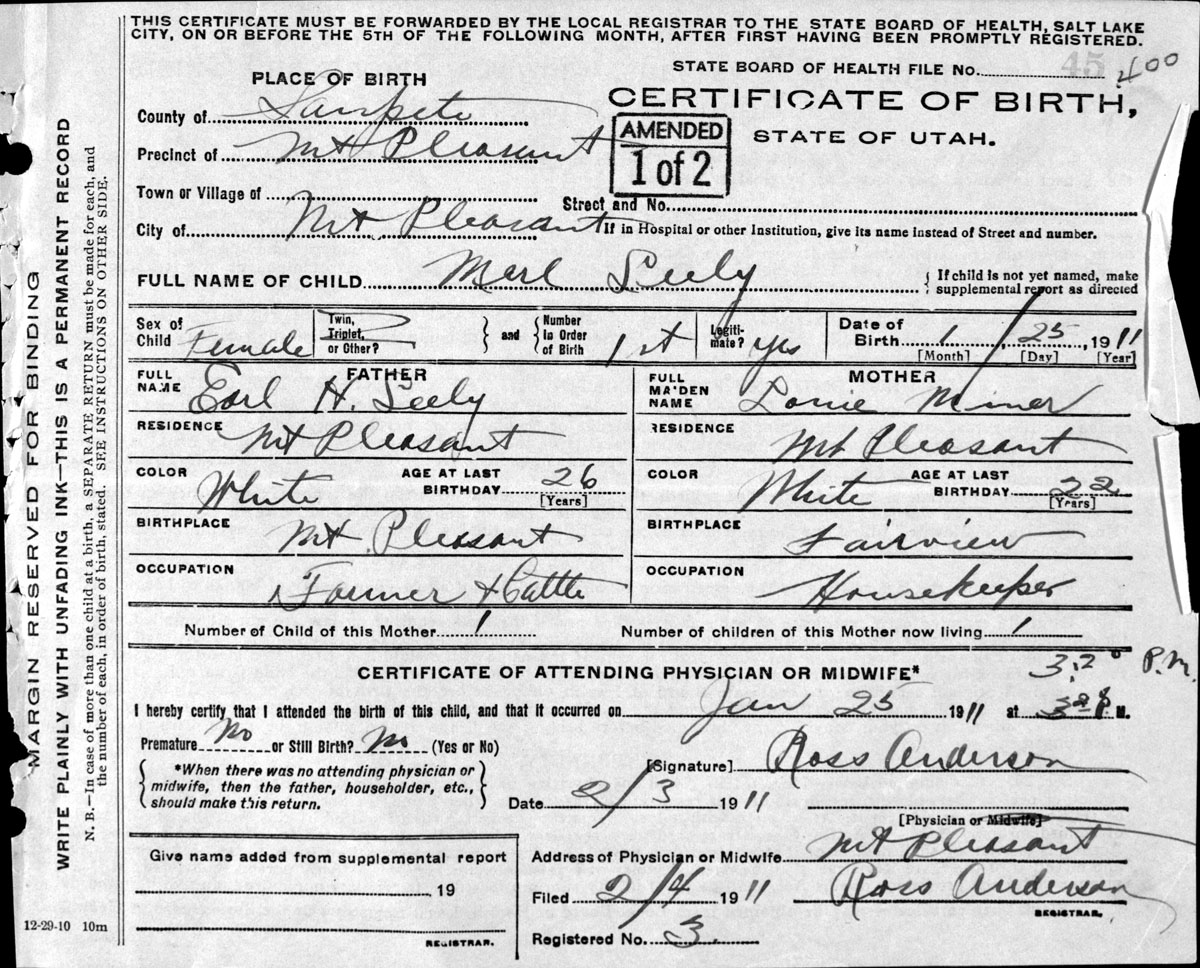 THIS CERTIFICATE MUST BE FORWARDED BY THE LOCAL REGISTRAR TO THE STATE BOARD OF HEALTH, SALT LAKE
CITY, ON OR BEFORE THE 5TH OF THE FOLLOWING MONTH, AFTER FIRST HAVING BEEN PROMPTLY REGISTERED.
STATE BOARD OF HEALTH FILE No. 45 400
PLACE OF BIRTH
CERTIFICATE OF BIRTH,
STATE OF UTAH.
AMENDED
1 of 2
County of Sanpete
Precinct of Mt Pleasant
Town or Village of
Street and No.
City of Mt Pleasant
If in Hospital or other Institution, give its name instead of Street and number.
FULL NAME OF CHILD Merl Seely
{ If child is not yet named, make
supplemental report as directed
Sex of Child Female
Twin, Triplet, or Other?
and
Number in Order of Birth 1st
Legitimate? yes
Date of Birth 1 25, 1911
[Month] [Day] [Year]
FATHER
FULL NAME Earl H. Seely
RESIDENCE Mt Pleasant
COLOR White
AGE AT LAST BIRTHDAY 26
[Years]
BIRTHPLACE Mt. Pleasant
OCCUPATION Farmer + Cattle
MOTHER
FULL MAIDEN NAME Miner
RESIDENCE Mt Pleasant
COLOR White
AGE AT LAST BIRTHDAY 22
[Years]
BIRTHPLACE Fairview
OCCUPATION Housekeeper
Number of Child of this Mother 1
Number of children of this Mother now living 1
CERTIFICATE OF ATTENDING PHYSICIAN OR MIDWIFE*
3:20 P.M.
I hereby certify that I attended the birth of this child, and that it occurred on Jan 25 1911 at M.
Premature No or Still Birth? No (Yes or No)
{ *When there was no attending physician or
midwife, then the father, householder, etc.,
should make this return. }
[Signature] Ross Anderson
Date 2/3 1911
[Physician or Midwife]
Give name added from supplemental report
19
REGISTRAR.
Address of Physician or Midwife Mt Pleasant
Filed 2/4 1911 Ross Anderson
REGISTRAR.
Registered No. 3
12-29-10 10m
MARGIN RESERVED FOR BINDING
WRITE PLAINLY WITH UNFADING INK—THIS IS A PERMANENT RECORD
N. B.—In case of more than one child at a birth, a SEPARATE RETURN must be made for each, and
the number of each, in order of birth, stated. SEE INSTRUCTIONS ON OTHER SIDE.